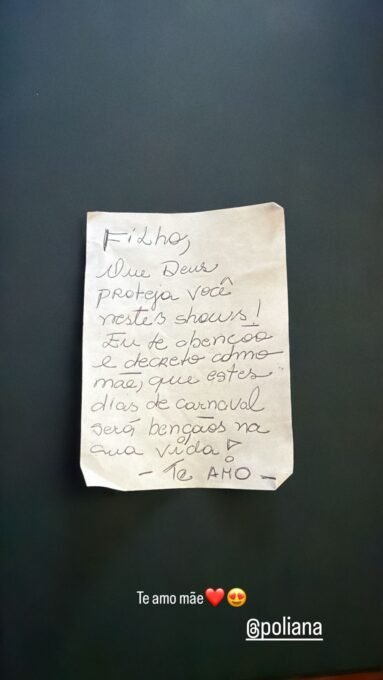 Filho,
Que Deus
proteja você
nestes shows!
Eu te abenção
e decreto como
mãe, que estes
dias de carnaval
será bençãos na
sua vida!
- Te AMO -
Te amo mãe❤️😍
@poliana